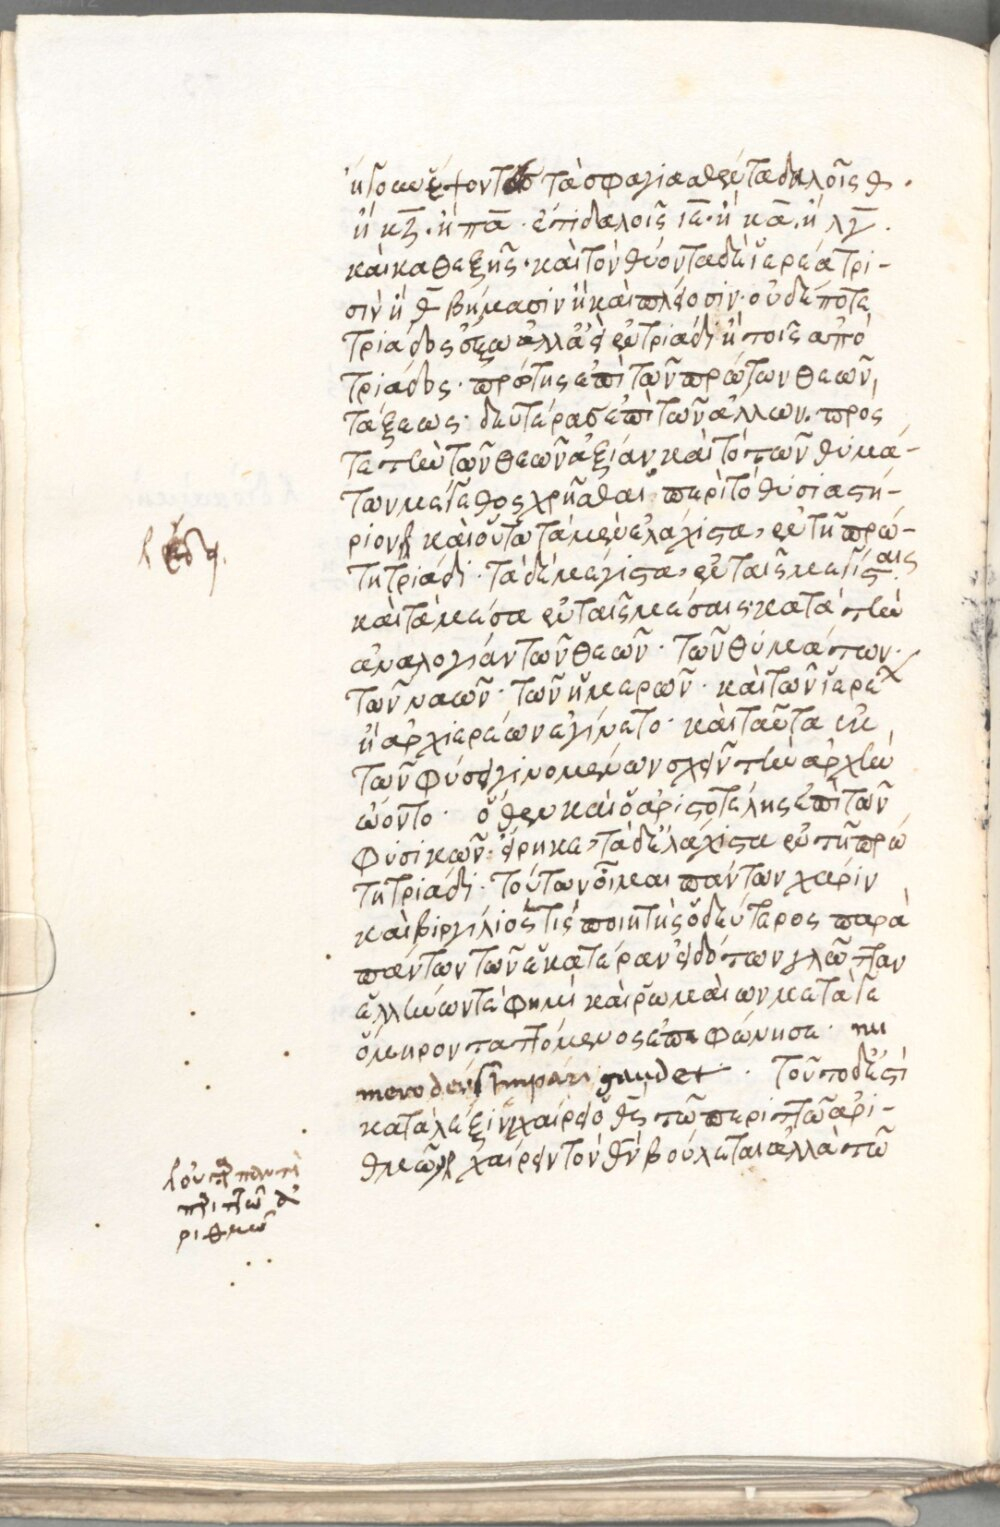 τὰ σφάγια
ἢ κζ· ἢ πα· ἐπὶ δαλοῖς ια· ἢ κα· ἢ λγ·
καὶ καθεξῆς· καὶ τὸν θύοντα δὲ ἱερέα τρι-
σὶν ἢ θ βήμασιν ἢ καὶ πλέοσιν· οὐδέποτε
τριάδος ἔξω ἀλλ' ἀεὶ ἐν τριάδι ἢ τοῖς ἀπὸ
τριάδος· πρώτης ἐπὶ τῶν πρώτων θεῶν
τάξεως· δευτέρας ἐπὶ τῶν ἄλλων· πρὸς
τε τὴν τῶν θεῶν ἀξίαν καὶ τὸ τῶν θυμά-
των μέγεθος χρῆσθαι· περὶ τὸ θυσιαστή-
ριον καὶ οὕτω τὰ μὲν ἐλάχιστα, ἐν τῇ πρώ-
τῃ τριάδι· τὰ δὲ μέγιστα, ἐν ταῖς μεγίσταις
καὶ τὰ μέσα ἐν ταῖς μέσαις κατὰ τὴν
ἀναλογίαν τῶν θεῶν· τῶν θυμάτων·
τῶν ναῶν· τῶν ἡμερῶν· καὶ τῶν ἱερέων
ἢ ἀρχιερέων ἐγίνετο· καὶ ταῦτα ἐκ
τῶν φύσει γινομένων σχεῖν τὴν ἀρχὴν
ᾤοντο· ὅθεν καὶ ὁ ἀριστοτέλης ἐπὶ τῶν
φυσικῶν εἴρηκε, τὰ δ' ἐλάχιστα ἐν τῇ πρώ
τῃ τριάδι· τούτων οἶμαι πάντων χάριν
καὶ βιργίλιός τις ποιητὴς ὁ δεύτερος παρὰ
πάντων τῶν ἑκατέραν εἰδότων γλῶτταν
ἑλλήνων τέ φημι καὶ ῥωμαίων μετά γε
ὅμηρον ταττόμενος ἐπεφώνησε· nu
mero deus impari gaudet· τοῦτο δέ ἐστι
κατὰ λέξιν χαίρει ὁ θς τῷ περιττῷ ἀρι-
θμῷ χαίρειν τὸν θν βούλεται ἀλλὰ τῷ
ἀ
ριθμῷ